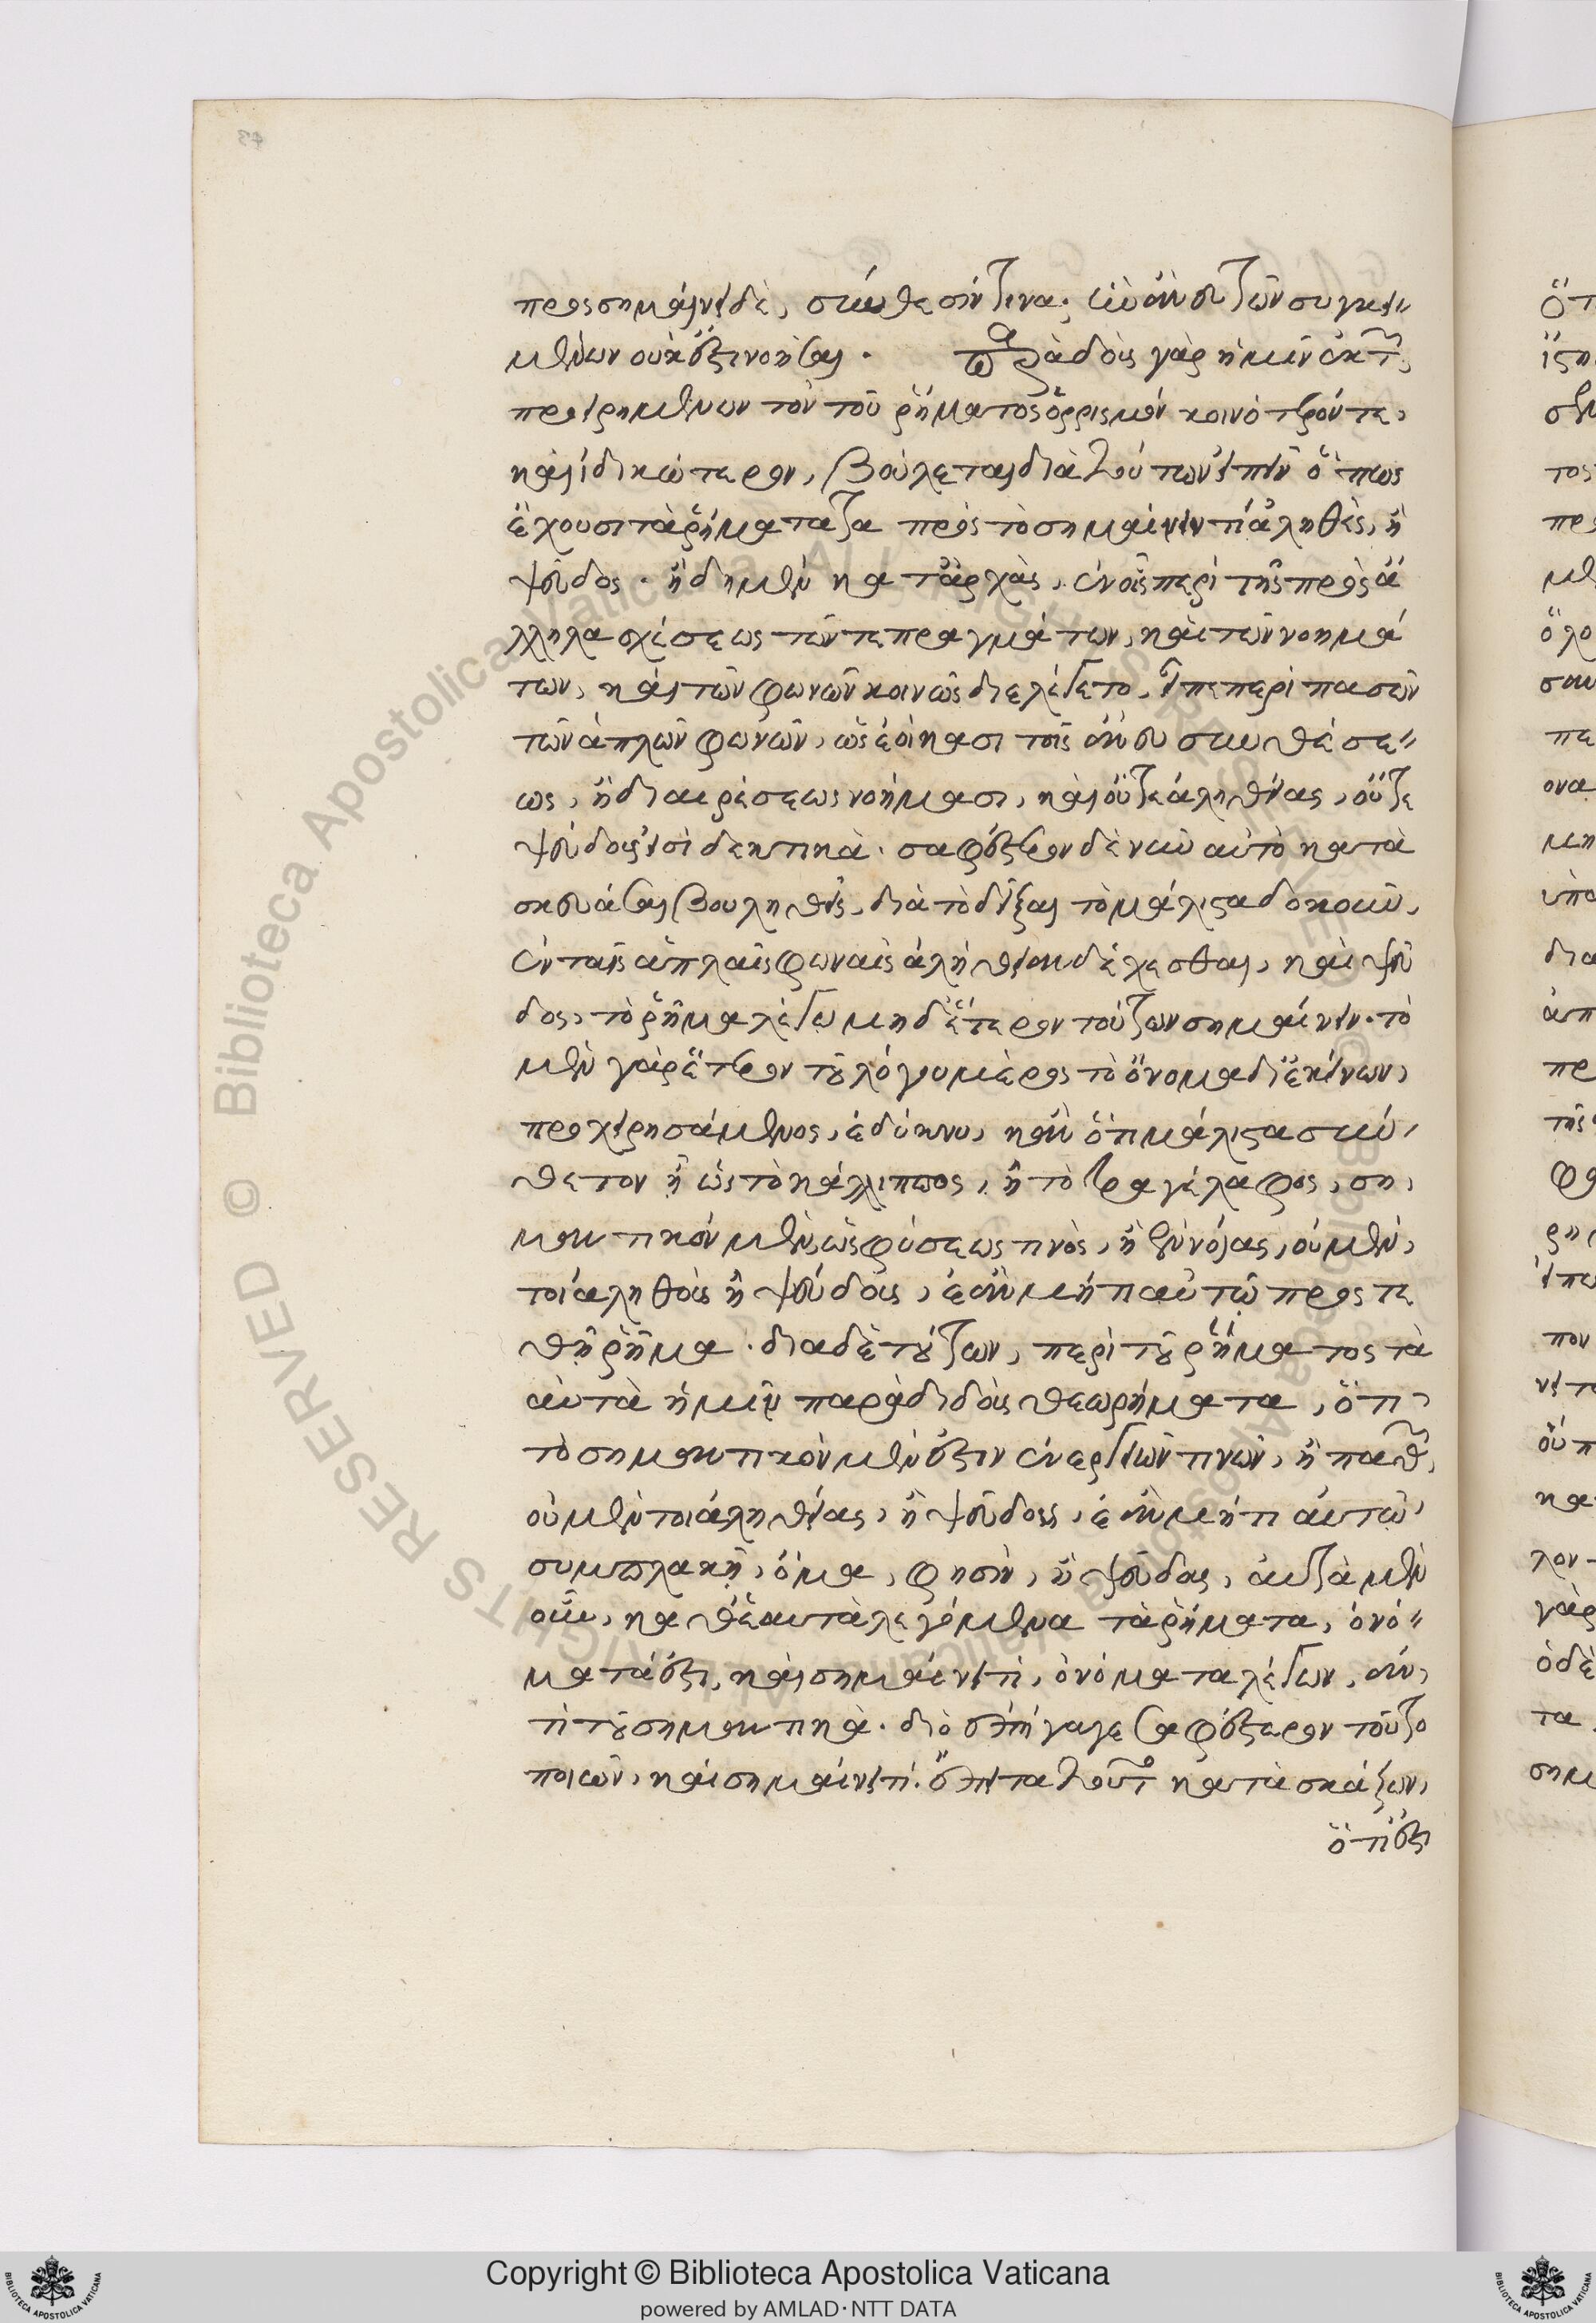 προσσημαίνει δὲ, σύνθεσίν τινα. ἣν ἄνευ τῶν συγκει-
μένων οὐκ ἔστι νοῆσαι. Παραδοὺς γὰρ ἡμῖν ἐκ τῶν
προειρημένων τὸν τοῦ ῥήματος ὁρρισμὸν κοινότερόν τε,
καὶ ἰδικώτερον, βούλεται διὰ τούτων εἰπεῖν ὅπως
ἔχουσι τὰ ῥήματα πρὸς τὸ σημαίνειν τί ἀληθὲς, ἢ
ψεῦδος. ἤδη μὲν κατ' ἀρχὰς, ἐν οἷς περὶ τῆς πρὸς ἀ
λληλα σχέσεως τῶν τε πραγμάτων, καὶ τῶν νοημά
των, καὶ τῶν φωνῶν κοινῶς διελέγετο, εἶπε περὶ πασῶν
τῶν ἁπλῶν φωνῶν, ὡς ἐοίκασι τοῖς ἄνευ συνθέσε-
ως, ἢ διαιρέσεως νοήμασι, καὶ οὔτε ἀληθείας, οὔτε
ψεύδους εἰσὶ δεκτικὰ. σαφέστερον δὲ νῦν αὐτὸ κατα
σκευάσαι βουληθεὶς, διὰ τὸ δεῖξαι τὸ μάλιστα δοκοῦν,
ἐν ταῖς ἁπλαῖς φωναῖς ἀλήθειαν δέχεσθαι, καὶ ψεῦ
δος, τὸ ῥῆμα λέγω μηδέτερον τούτων σημαίνειν. τὸ
μὲν γὰρ ἕτερον τοῦ λόγου μέρος τὸ ὄνομα δι' ἐκείνων,
προχειρησάμενος, ἐδείκνυ, κἂν ὅτι μάλιστα σύν
θετον ᾖ ὡς τὸ κάλλιππος, ἢ τὸ τραγέλαφος, ση
μαντικὸν μὲν ὡς φύσεως τινὸς, ἢ ἐννοίας, οὐ μέν
τοι ἀληθοῦς ἢ ψεύδους, ἐὰν μή τι αὐτῷ προστε
θῇ ῥῆμα. διὰ δὲ τούτων, περὶ τοῦ ῥήματος τὰ
αὐτὰ ἡμῖν παραδιδοὺς θεωρήματα, ὅτι
τὸ σημαντικὸν μὲν ἔστιν ἐνεργειῶν τινῶν, ἢ παθῶν,
οὐ μέντοι ἀληθείας, ἢ ψεύδους, ἐὰν μή τι αὐτῷ
συμπλακῇ, ὄμα, φησὶν, ἢ ψεῦδος, αὐτὰ μὲν
οὖν, καθ' ἑαυτὰ λεγόμενα τὰ ῥήματα, ὀνό-
ματά ἐστι, καὶ σημαίνει τὶ, ὀνόματα λέγων, ἀν
τὶ τοῦ σημαντικὰ. διὸ ἐπήγαγε σαφέστερον τοῦτο
ποιῶν, καὶ σημαίνει τὶ. ἔπειτα τοῦτο κατασκάζων,
ὅτι ἔστι